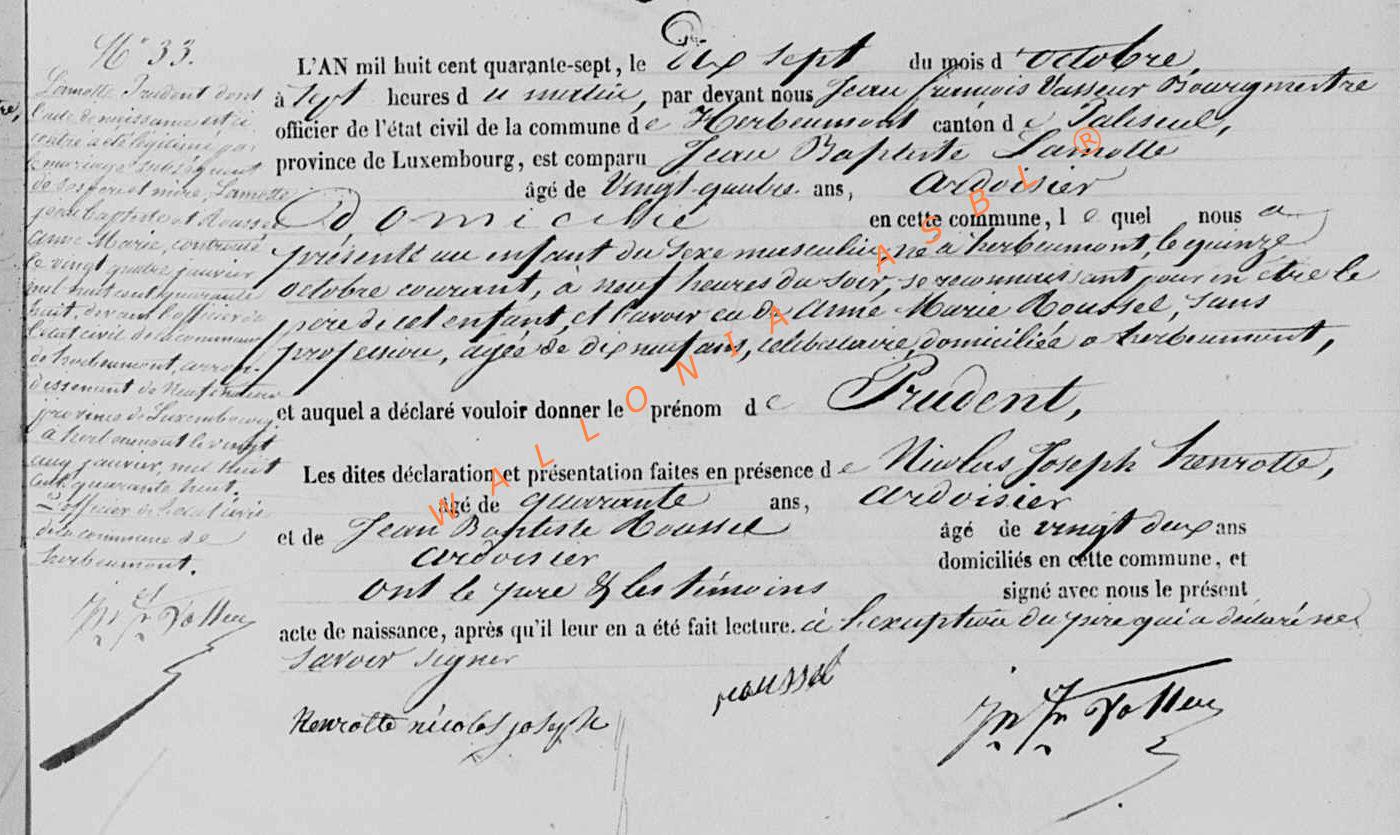 N° 33.
Lamotte Prudent dont
l'acte de naissance est ci
contre a été légitimé par
le mariage subséquent
de ses père et mère, Lamotte
jean baptiste et Roussel
Anne Marie, contracté
le vingt quatre janvier
mil huit cent quarante
huit, devant l'officier de
l'état civil de la commune
de herbeumont, arron-
dissement de Neufchateau
province de Luxembourg.
a herbeumont le vingt
janvier, mil huit
cent quarante huit.
L'officier de l'état civil
de la commune de
herbeumont.
L'AN mil huit cent quarante-sept, le Dix sept du mois d'octobre,
à sept heures du matin, par devant nous Jean françois Vasseur Bourgmestre
officier de l'état civil de la commune de Herbeumont canton de Paliseul,
province de Luxembourg, est comparu Jean Baptiste Lamotte
âgé de Vingt-quatre ans, ardoisier
Domicilié en cette commune, lequel nous a
présenté un enfant du sexe masculin, né à herbeumont, le quinze
octobre courant, à neuf heures du soir, se reconnaissant pour en être le
père de cet enfant, et l'avoir eu de Anne Marie Roussel, sans
profession, agée de dix neuf ans, célibataire, domiciliée a herbeumont,
et auquel a déclaré vouloir donner le prénom de Prudent,
Les dites déclaration et présentation faites en présence de Nicolas Joseph henrotte,
âgé de quarante ans, ardoisier
et de Jean Baptiste Roussel âgé de vingt deux ans
ardoisier domiciliés en cette commune, et
ont le père & les témoins signé avec nous le présent
acte de naissance, après qu'il leur en a été fait lecture. à l'exception du père qui a déclaré ne
savoir signer
roussel
Henrotte nicolas joseph
WALLONIA ASBL ®